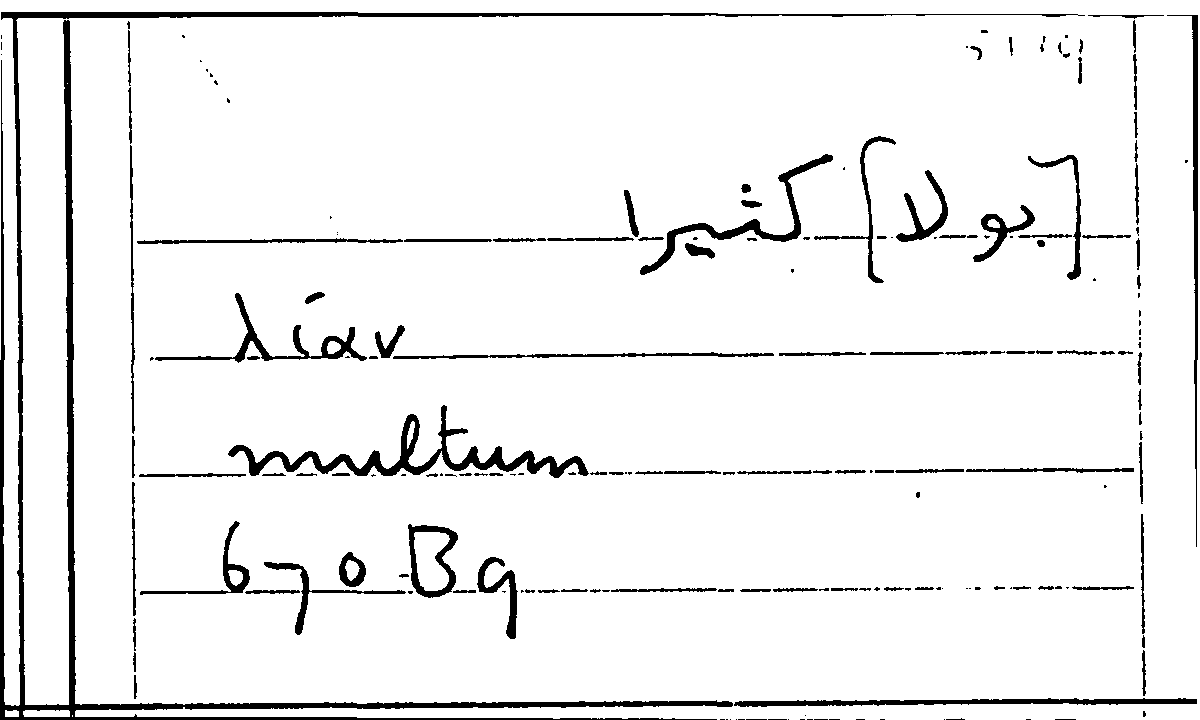 [بولا] كثيرا
λίαν
multum
670 B9